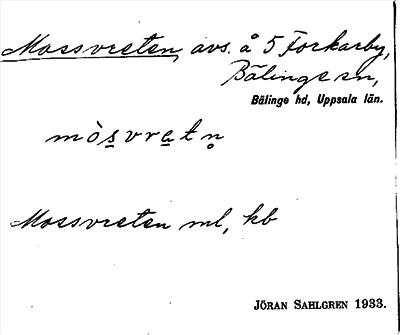 Mossvreten, avs. å 5 Forkarby,
Bälinge sn,
Bälinge hd, Uppsala län.
mòs̲vra̲tn̥
Mossvreten ml, kb
JÖRAN SAHLGREN 1933.